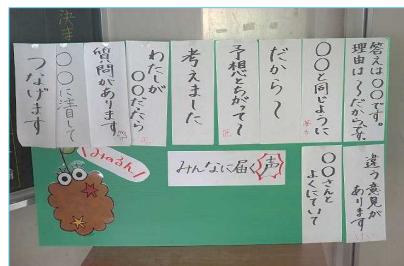 答えは〇〇です。
理由は〜だからです。
〇〇と同じように
だから〜
予想とちがって〜
考えました
わたしが
〇〇だったら
質問があります
〇〇に注目して
つなげます
違う意見が
あります
〇〇さんと
よくにていて
みんなに届く声
みのるん